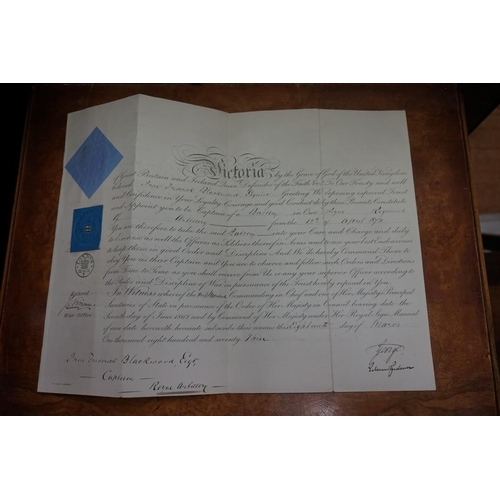 Victoria by the Grace of God of the United Kingdom
of Great Britain and Ireland Queen Defender of the Faith &c. To Our Trusty and well
beloved Blackwood Esquire Greeting We reposing especial Trust
and Confidence in Your Loyalty Courage and good Conduct do by these Presents Constitute
and Appoint you to be Captain of a Battery in Our
of Artillery from the
You are therefore to take the said Battery into your Care and Charge and duly
to Exercise as well the Officers as Soldiers thereof in Arms and to use your best endeavours
to keep them in good Order and Discipline And We do hereby Command Them to
Obey You as their Captain and you to observe and follow such Orders and Directions
from Time to Time as you shall receive from Us or any your superior Officer according to
the Rules and Discipline of War in pursuance of the Trust hereby reposed in You
In Witness whereof the Commanding in Chief and one of Her Majesty's Principal
Secretaries of State in pursuance of the Order of Her Majesty in Council bearing date the
Seventh day of June 1862 and by Command of Her Majesty under Her Royal Sign Manual
of our date herewith hereunto subscribe their names this Eighteenth day of March
One thousand eight hundred and seventy
George
Blackwood Esqr.
Captain
Royal Artillery